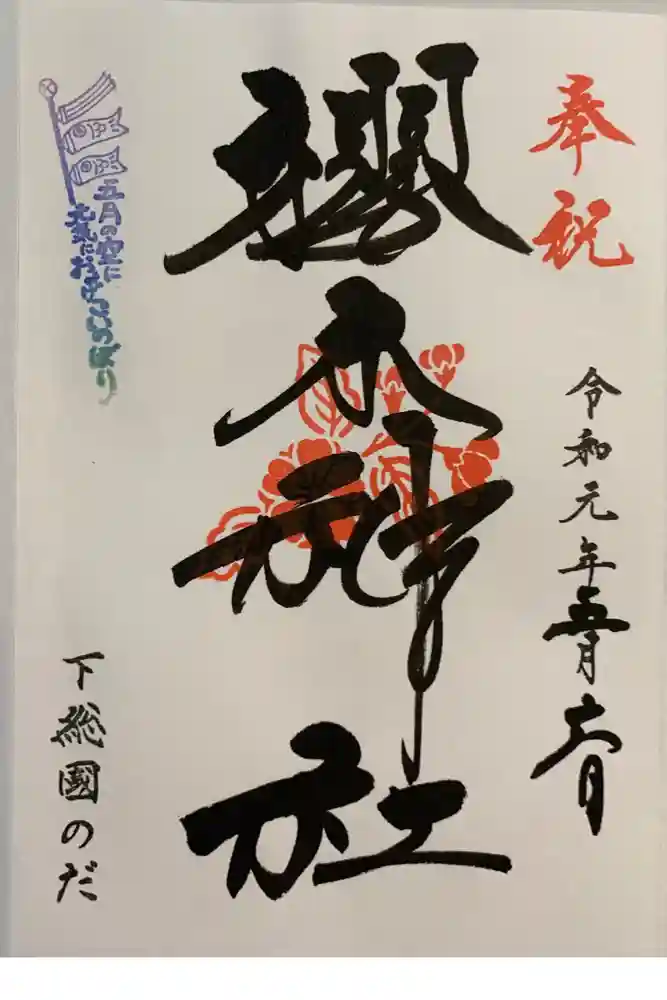 奉祝
令和元年五月六日
櫻木神社
五月の空に
元気におよぐこいのぼり
下総國のだ